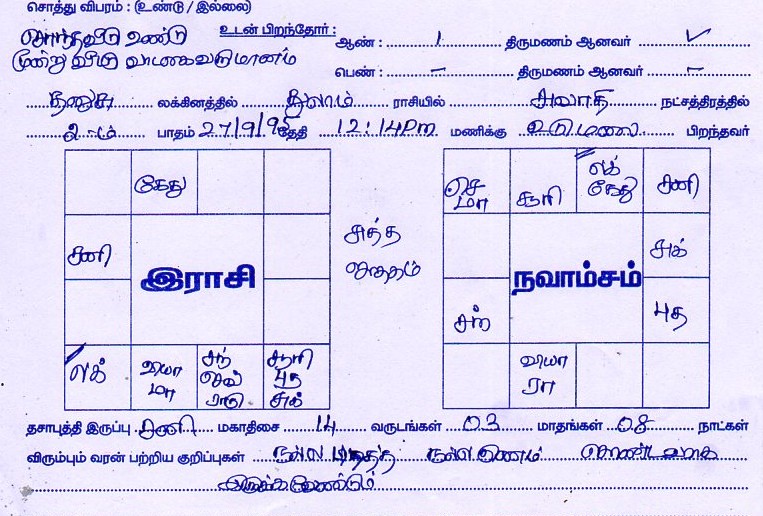 சொத்து விபரம் : (உண்டு / இல்லை)
சொந்தவீடு உண்டு உடன் பிறந்தோர் : ஆண் : 1 திருமணம் ஆனவர் ✓
மூன்று வீடு வாடகைவருமானம்
பெண் : – திருமணம் ஆனவர் –
தனுசு லக்கினத்தில் துலாம் ராசியில் சுவாதி நட்சத்திரத்தில்
2-ம் பாதம் 27/9/95 தேதி 12:14PM மணிக்கு உடுமலை பிறந்தவர்
கேது
சனி
இராசி
லக் வியா மா சந் செவ் ராகு சூரி புத சுக்
சுத்த ஜாதகம்
செ மா சூரி லக் கேது சனி
சுக்
நவாம்சம்
சந் புத
வியா ரா
தசாபுத்தி இருப்பு சனி மகாதிசை 14 வருடங்கள் 03 மாதங்கள் 08 நாட்கள்
விரும்பும் வரன் பற்றிய குறிப்புகள் நல்ல படித்த நல்ல குணம் கொண்டவராக
இருக்கவேண்டும்